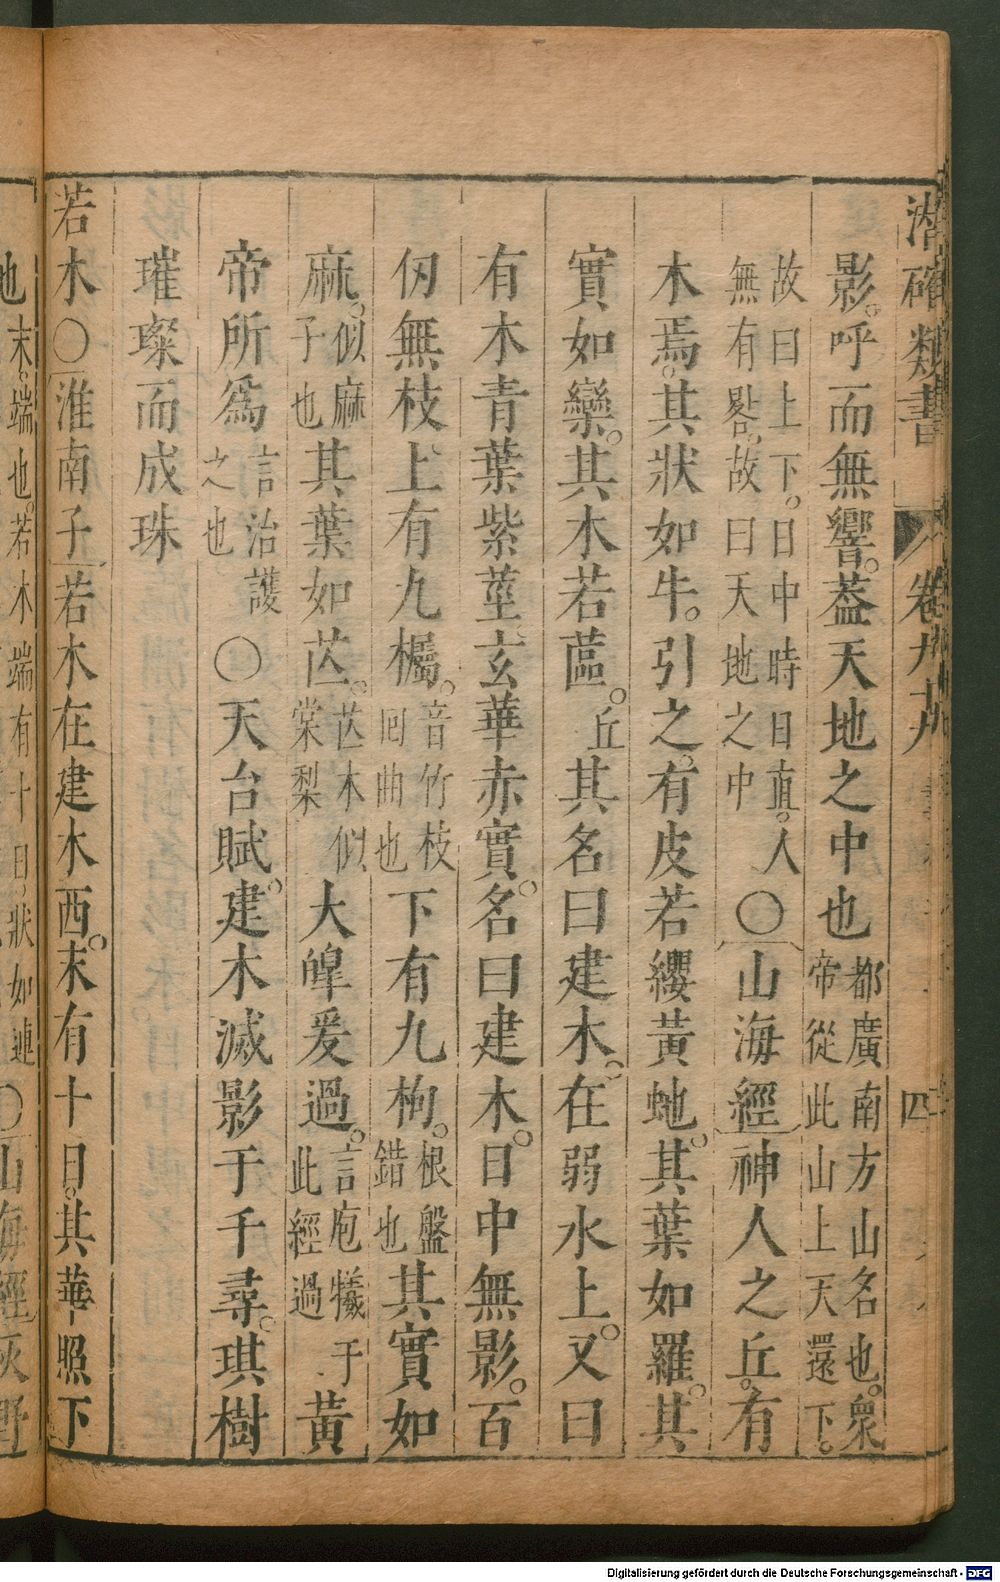 潛確類書 卷九十九 四
影。呼而無響。葢天地之中也都廣南方山名也。衆帝從此山上天還下。
故曰上下。日中時日直。人無有晷。故曰天地之中○山海經神人之丘。有
木焉。其狀如牛。引之。有皮若纓黃虵。其葉如羅。其
實如欒。其木若蓲。丘其名曰建木。在弱水上。又曰
有木青葉紫莖玄華赤實。名曰建木。日中無影。百
仞無枝上有九欘。音竹枝囘曲也下有九枸。根盤錯也其實如
麻。似麻子也其葉如芒。芒木似棠梨大皥爰過。言庖犧于此經過黃
帝所爲言治護之也○天台賦。建木滅影于千尋。琪樹
璀璨而成珠
若木○淮南子若木在建木西。末有十日。其華照下
地末。端也。若木端有十日，狀如連○山海經灰野
Digitalisierung gefördert durch die Deutsche Forschungsgemeinschaft - DFG